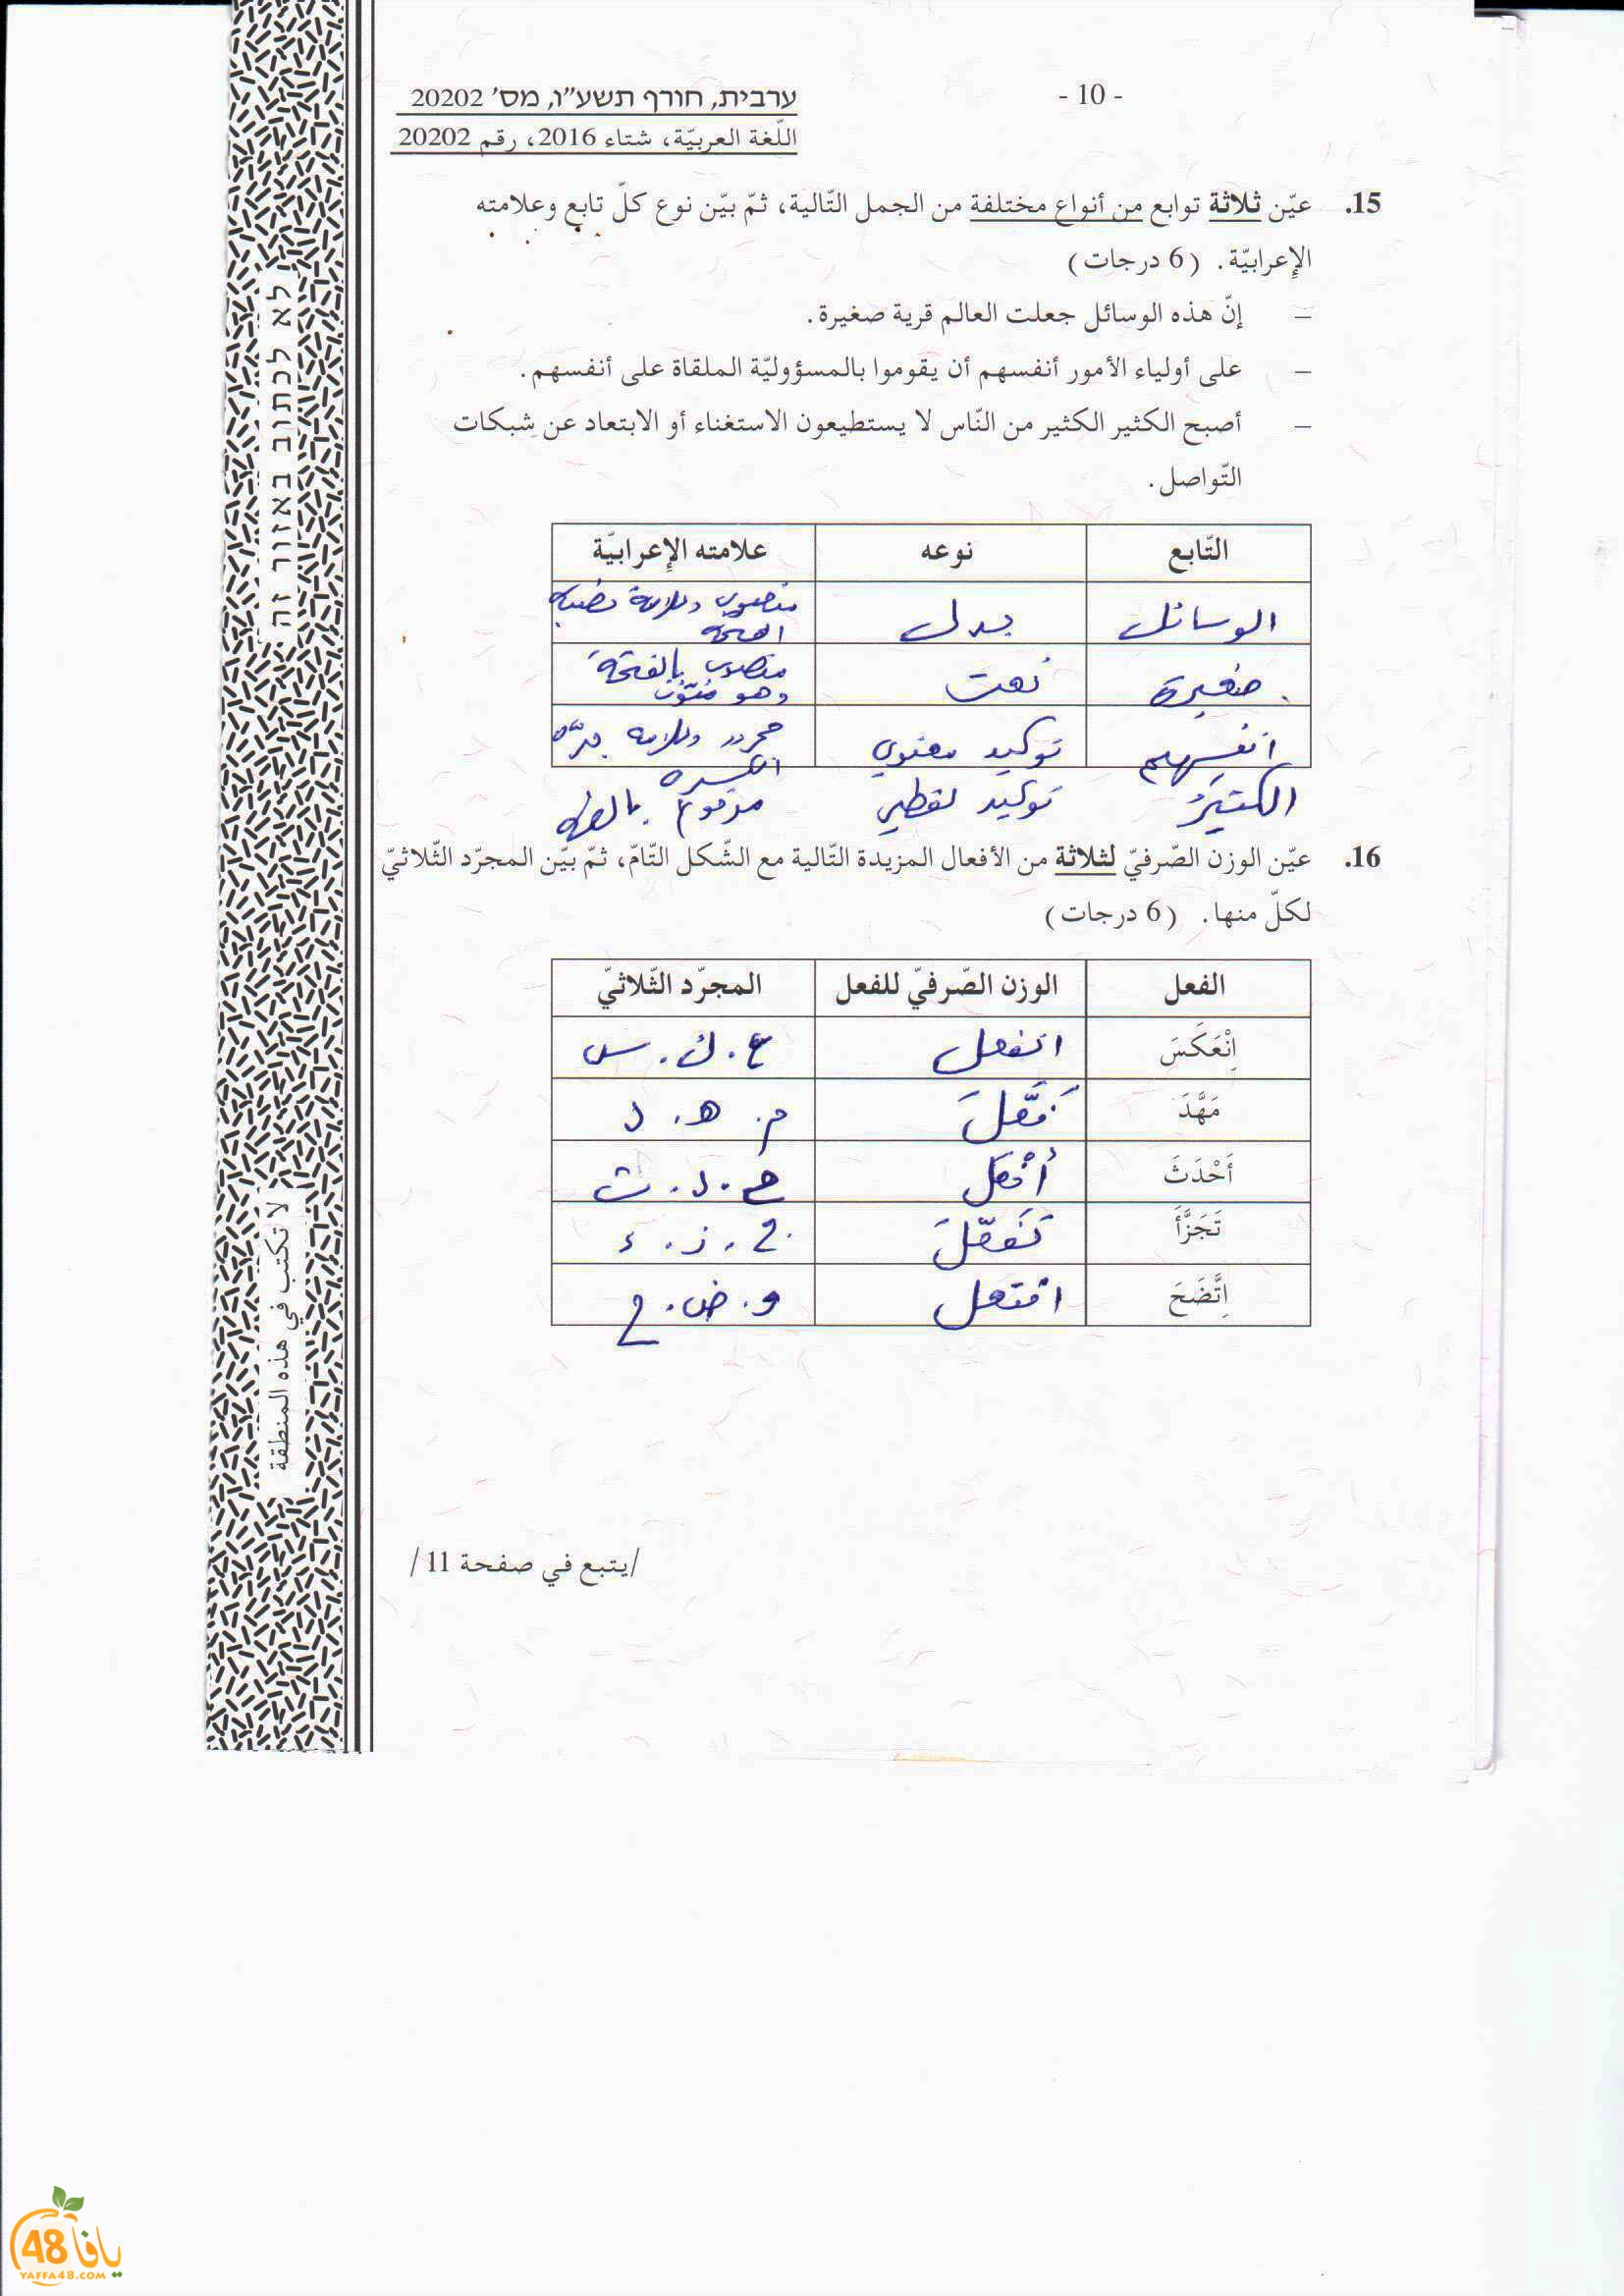 - 10 -
ערבית, חורף תשע״ו, מס' 20202
اللّغة العربيّة، شتاء 2016، رقم 20202
15. عيّن ثلاثة توابع من أنواع مختلفة من الجمل التّالية، ثمّ بيّن نوع كلّ تابع وعلامته
الإعرابيّة. (6 درجات)
– إنّ هذه الوسائل جعلت العالم قرية صغيرة.
– على أولياء الأمور أنفسهم أن يقوموا بالمسؤوليّة الملقاة على أنفسهم.
– أصبح الكثير الكثير من النّاس لا يستطيعون الاستغناء أو الابتعاد عن شبكات
التّواصل.
التّابع نوعه علامته الإعرابيّة
الوسائل بدل منصوب وعلامة نصبه
الفتحة
صغيرة نعت منصوب بالفتحة
وهو منوّن
أنفسهم توكيد معنوي مجرور وعلامة جرّه
الكسرة
الكثيرُ توكيد لفظي مرفوع بالضمة
16. عيّن الوزن الصّرفيّ لثلاثة من الأفعال المزيدة التّالية مع الشّكل التّامّ، ثمّ بيّن المجرّد الثّلاثيّ
لكلّ منها. (6 درجات)
الفعل الوزن الصّرفيّ للفعل المجرّد الثّلاثيّ
اِنْعَكَسَ انفعل ع. ك. س
مَهَّدَ فَعَّلَ م. ه. د
أَحْدَثَ أفْعَل ح. د. ث
تَجَزَّأَ تَفَعَّلَ ج. ز. ء
اِتَّضَحَ افتعل و. ض. ح
/يتبع في صفحة 11/
לא לכתוב באזור זה
لا تكتب في هذه المنطقة
يافا 48
YAFFA48.COM